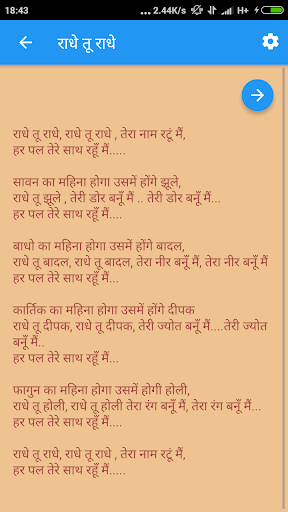 18:43
... 2.44K/s H+
राधे तू राधे
राधे तू राधे, राधे तू राधे , तेरा नाम रटूं मैं,
हर पल तेरे साथ रहूँ मैं.....
सावन का महिना होगा उसमें होंगे झूले,
राधे तू झूले , तेरी डोर बनूँ मैं .. तेरी डोर बनूँ मैं...
हर पल तेरे साथ रहूँ मैं....
बाधो का महिना होगा उसमें होंगे बादल,
राधे तू बादल, राधे तू बादल, तेरा नीर बनूँ मैं, तेरा नीर बनूँ मैं
हर पल तेरे साथ रहूँ मैं...
कार्तिक का महिना होगा उसमें होंगे दीपक
राधे तू दीपक, राधे तू दीपक, तेरी ज्योत बनूँ मैं....तेरी ज्योत
बनूँ मैं..
हर पल तेरे साथ रहूँ मैं....
फागुन का महिना होगा उसमें होगी होली,
राधे तू होली, राधे तू होली तेरा रंग बनूँ मैं, तेरा रंग बनूँ मैं...
हर पल तेरे साथ रहूँ मैं....
राधे तू राधे, राधे तू राधे , तेरा नाम रटूं मैं,
हर पल तेरे साथ रहूँ मैं.....